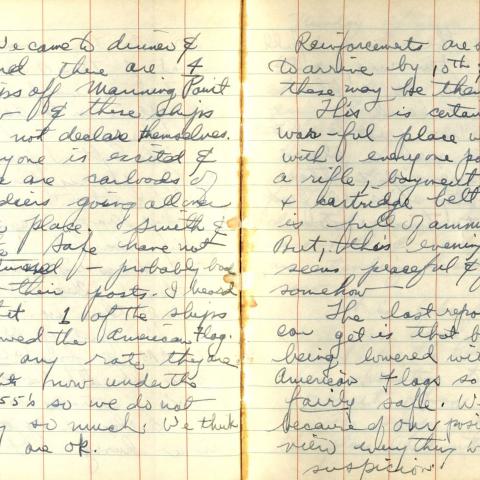 We came to dinner &
and there are 4
ips off Manning Point
& these ships
not declare themselves.
yone is excited &
e are carloads of
diers going all over
place. Smith &
Safe have not
turned - probably back
their posts. I heard
et 1 of the ships
owed the American Flag.
any rate, they are
now under the
55's so we do not
so much. We think
are ok.
Reinforcements are
to arrive by 10th
these may be the
This is certain
war-ful place
with everyone
a rifle, bayonet
& cartridge belt
is full of amm
But, this evening
seems peaceful &
somehow -
The last repo
can get is that b
being lowered wit
American flags so
fairly safe. W
because of our posi
view everything w
suspicion.